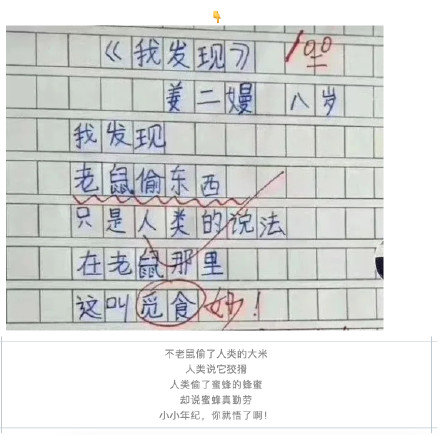 《我发现》 100
姜二嫚 八岁
我发现
老鼠偷东西
只是人类的说法
在老鼠那里
这叫觅食 妙！
不老鼠偷了人类的大米
人类说它狡猾
人类偷了蜜蜂的蜂蜜
却说蜜蜂真勤劳
小小年纪，你就悟了啊！